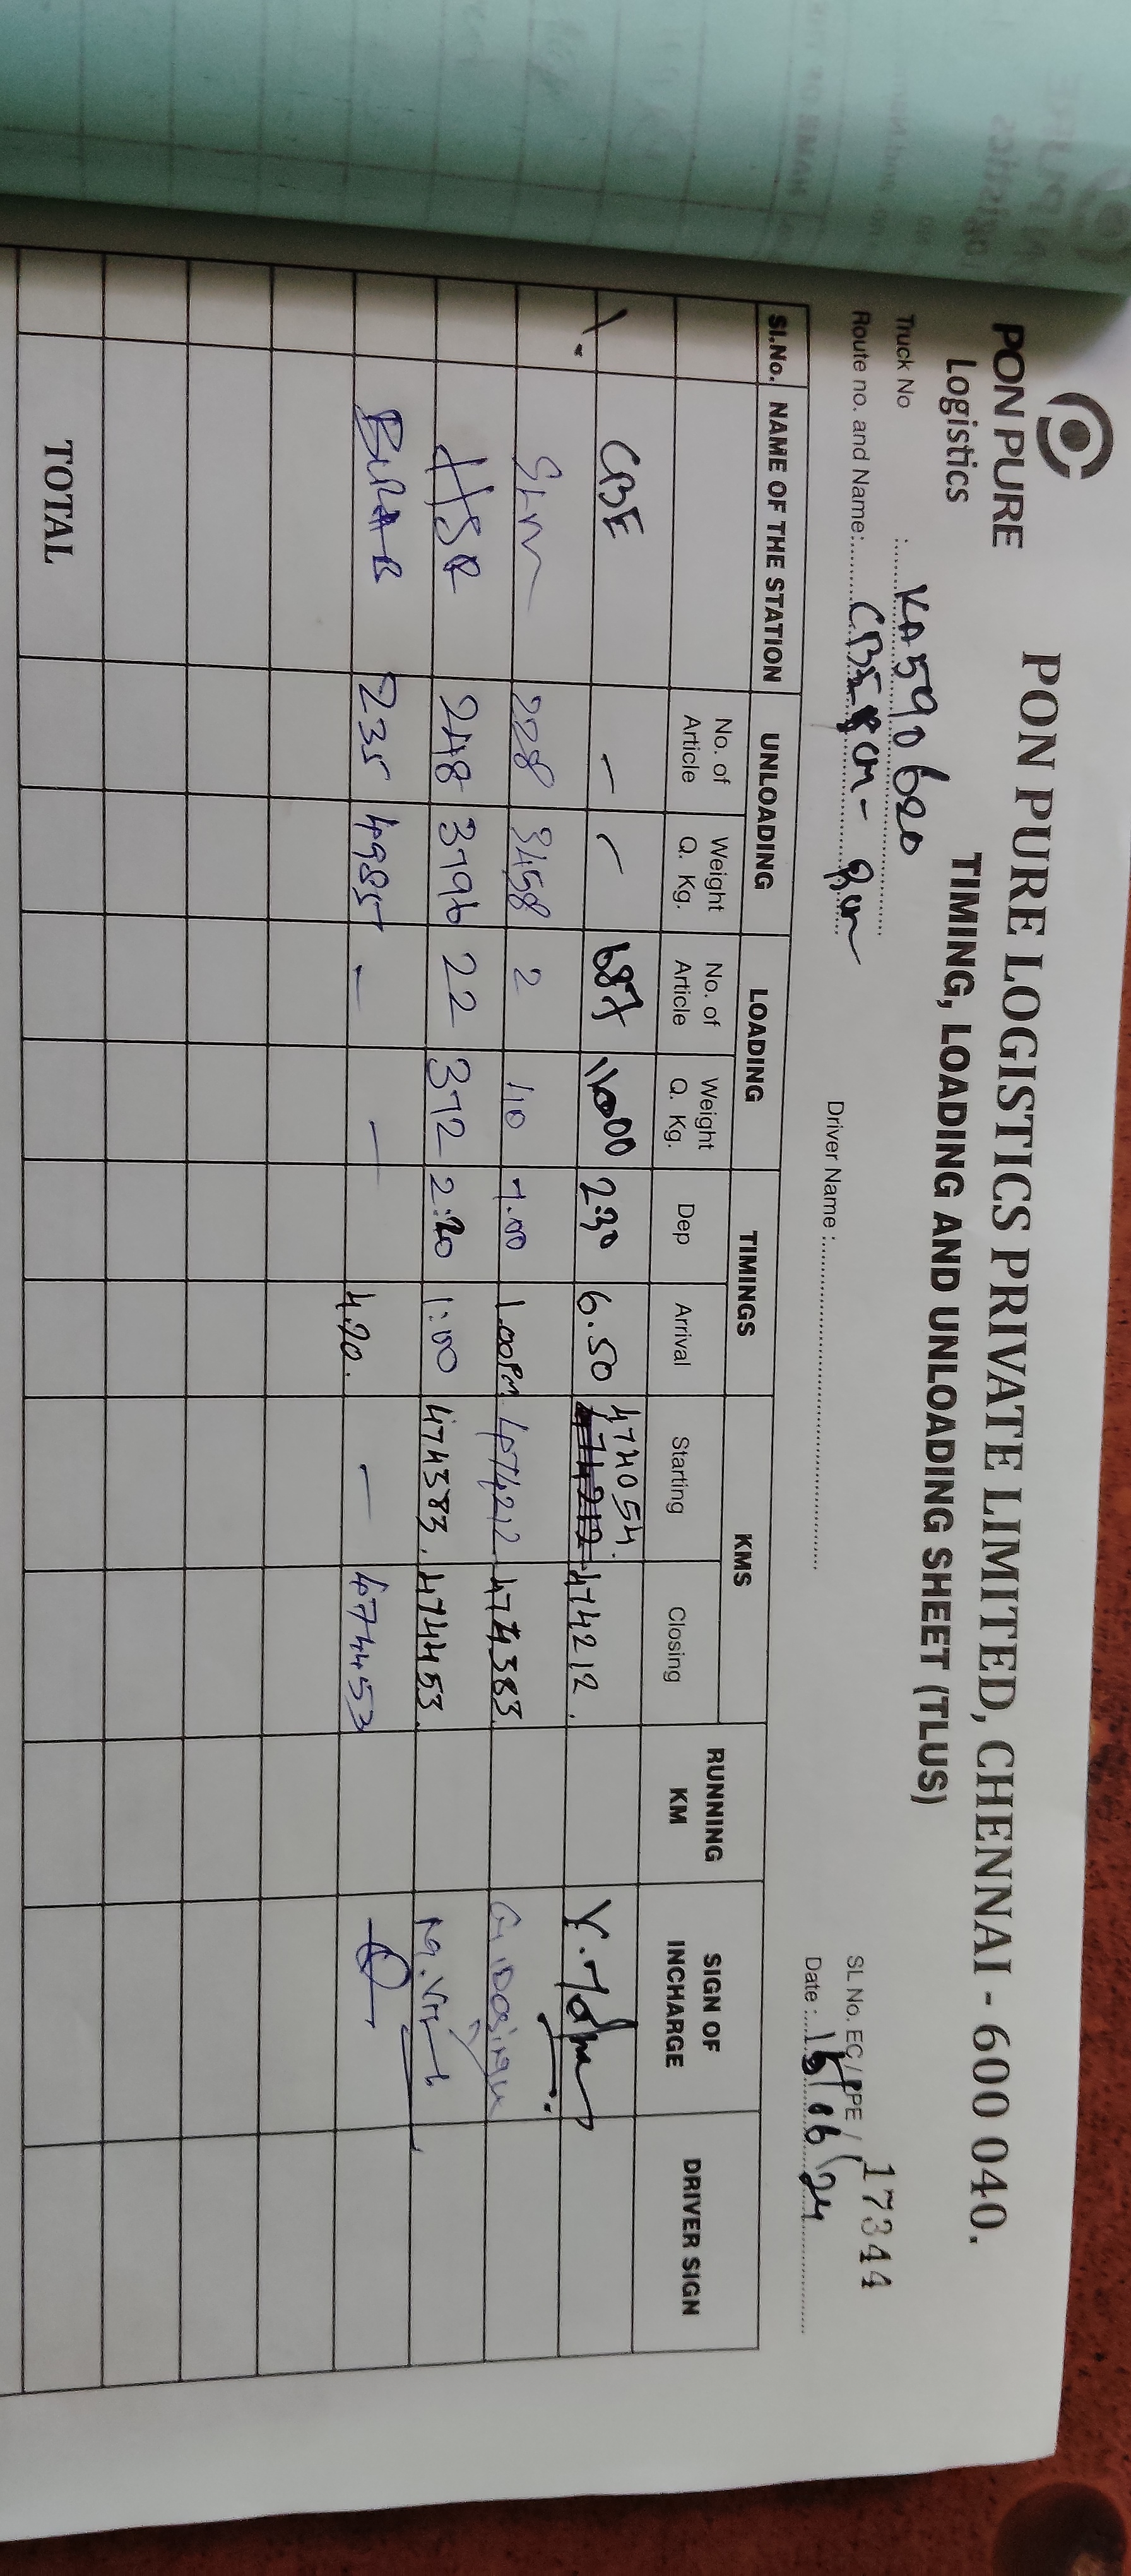 PON PURE
Logistics
PON PURE LOGISTICS PRIVATE LIMITED, CHENNAI - 600 040.
TIMING, LOADING AND UNLOADING SHEET (TLUS)
SL No. EC / PPE / 17344
Truck No : KA590620
Route no. and Name: Driver Name : Date : 15/06/24
Sl.No. NAME OF THE STATION UNLOADING LOADING TIMINGS KMS RUNNING KM SIGN OF INCHARGE DRIVER SIGN
No. of Article Weight Q. Kg. No. of Article Weight Q. Kg. Dep Arrival Starting Closing
1. CBE - - 687 11000 2:30 6.50 474054. 474212.
SLM 228 3458 2 110 7.00 1.00PM 474212 474383.
HSR 248 3796 22 372 2:20 1:00 474383. 474453.
235 4985 - - 4.20. - 474453
TOTAL